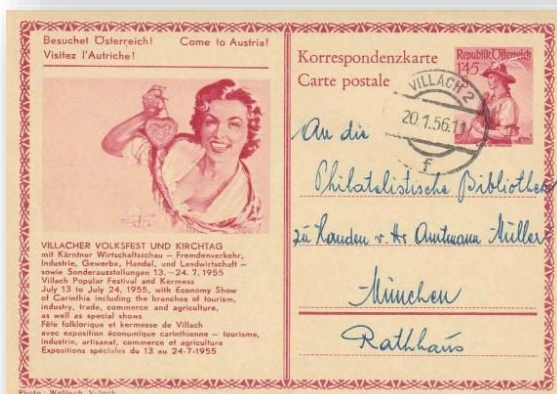 Besuchet Österreich! Come to Austria!
Visitez l'Autriche!
VILLACHER VOLKSFEST UND KIRCHTAG
mit Kärntner Wirtschaftsschau — Fremdenverkehr,
Industrie, Gewerbe, Handel, und Landwirtschaft —
sowie Sonderausstellungen 13. – 24. 7. 1955
Villach Popular Festival and Kermess
July 13 to July 24, 1955, with Economy Show
of Carinthia including the branches of tourism,
industry, trade, commerce and agriculture,
as well as special shows
Fête folklorique et kermesse de Villach
avec exposition économique carinthienne — tourisme,
industrie, artisanat, commerce et agriculture
Expositions spéciales du 13 au 24-7-1955
Korrespondenzkarte
Carte postale
Republik Österreich
1'45
VILLACH 2
20.1.56.11
f
An die
Philatelistische Bibliothek
zu Handen v. Hr Amtmann Müller
München
Rathhaus